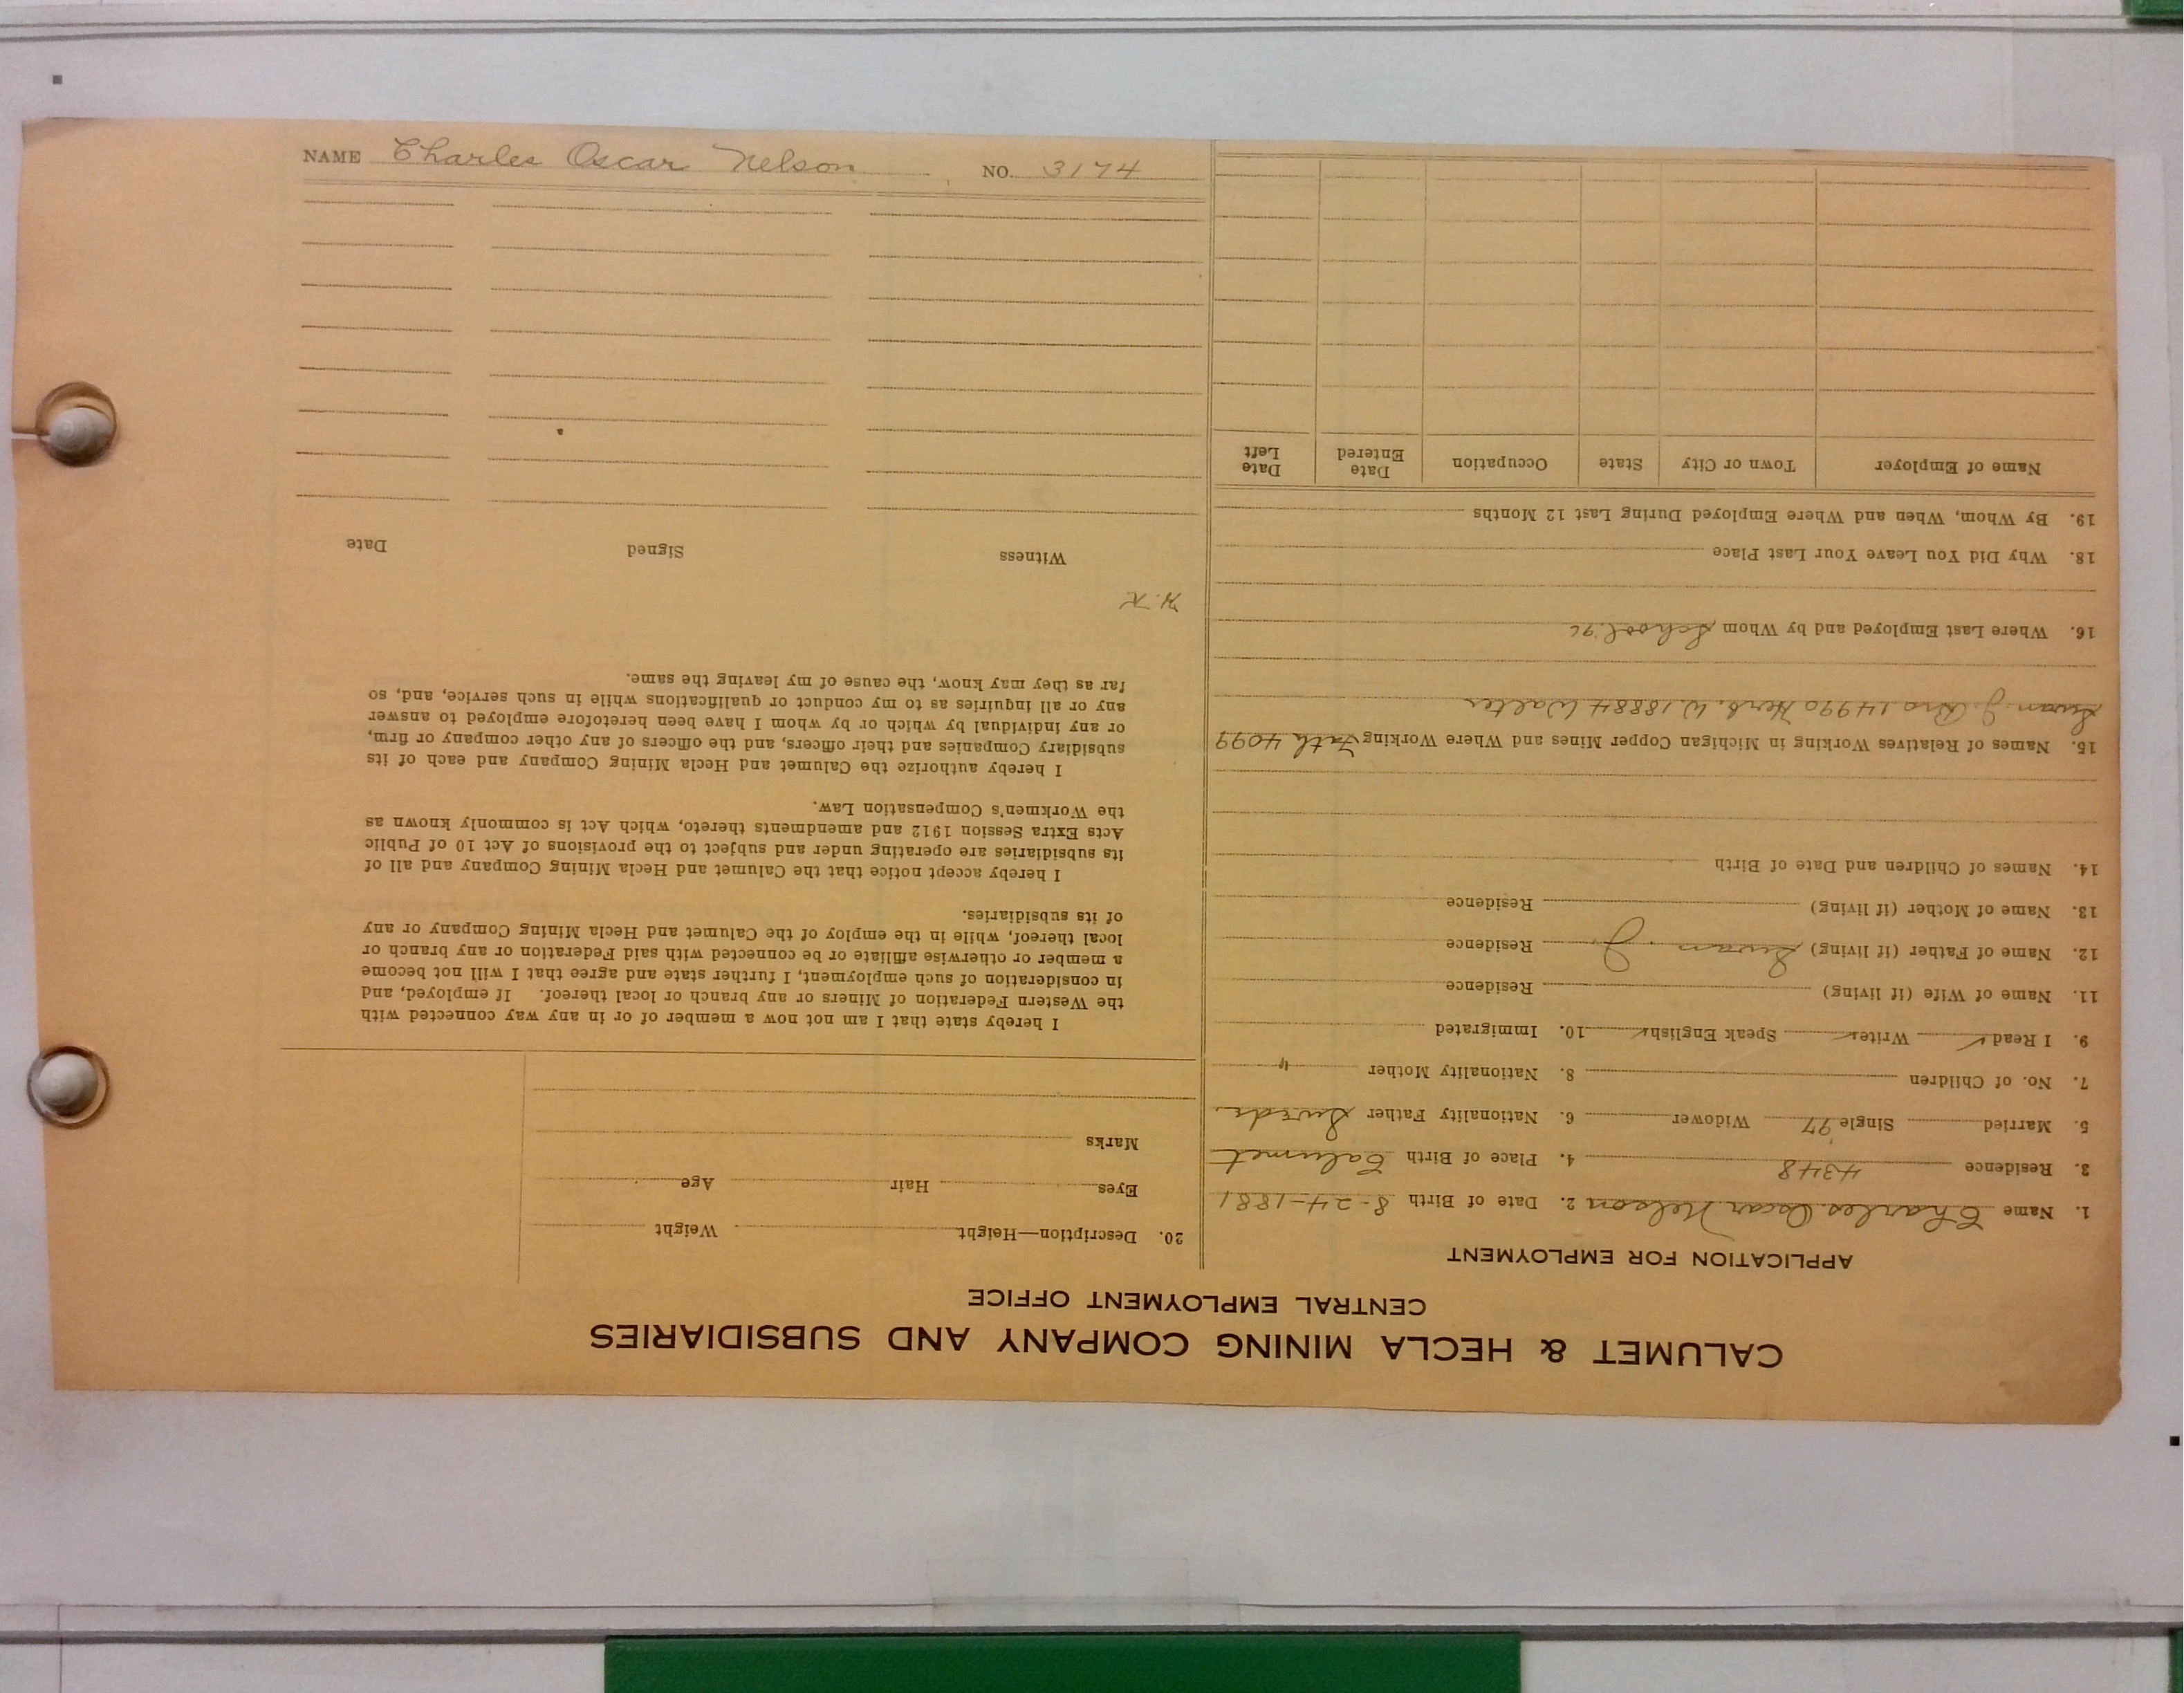 NAME Charles Oscar Nelson NO. 3174
CALUMET & HECLA MINING COMPANY AND SUBSIDIARIES
CENTRAL EMPLOYMENT OFFICE
APPLICATION FOR EMPLOYMENT
1. Name Charles Oscar Nelson 2. Date of Birth 8-24-1881
3. Residence 4348 4. Place of Birth Calumet
5. Married Single '97 Widower 6. Nationality Father Swede
7. No. of Children 8. Nationality Mother "
9. I Read ✓ Write ✓ Speak English ✓ 10. Immigrated
11. Name of Wife (if living) Residence
12. Name of Father (if living) Swan J. Residence
13. Name of Mother (if living) Residence
14. Names of Children and Date of Birth
15. Names of Relatives Working in Michigan Copper Mines and Where Working Fath 4099
Swan J. Bro 14990 Herb. W. 18884 Walter
16. Where Last Employed and by Whom School. 96
18. Why Did You Leave Your Last Place
19. By Whom, When and Where Employed During Last 12 Months
Name of Employer Town or City State Occupation Date Entered Date Left
20. Description—Height Weight
Eyes Hair Age
Marks
I hereby state that I am not now a member of or in any way connected with
the Western Federation of Miners or any branch or local thereof. If employed, and
in consideration of such employment, I further state and agree that I will not become
a member or otherwise affiliate or be connected with said Federation or any branch or
local thereof, while in the employ of the Calumet and Hecla Mining Company or any
of its subsidiaries.
I hereby accept notice that the Calumet and Hecla Mining Company and all of
its subsidiaries are operating under and subject to the provisions of Act 10 of Public
Acts Extra Session 1912 and amendments thereto, which Act is commonly known as
the Workmen's Compensation Law.
I hereby authorize the Calumet and Hecla Mining Company and each of its
subsidiary Companies and their officers, and the officers of any other company or firm,
or any individual by which or by whom I have been heretofore employed to answer
any or all inquiries as to my conduct or qualifications while in such service, and, so
far as they may know, the cause of my leaving the same.
H.K.
Witness Signed Date